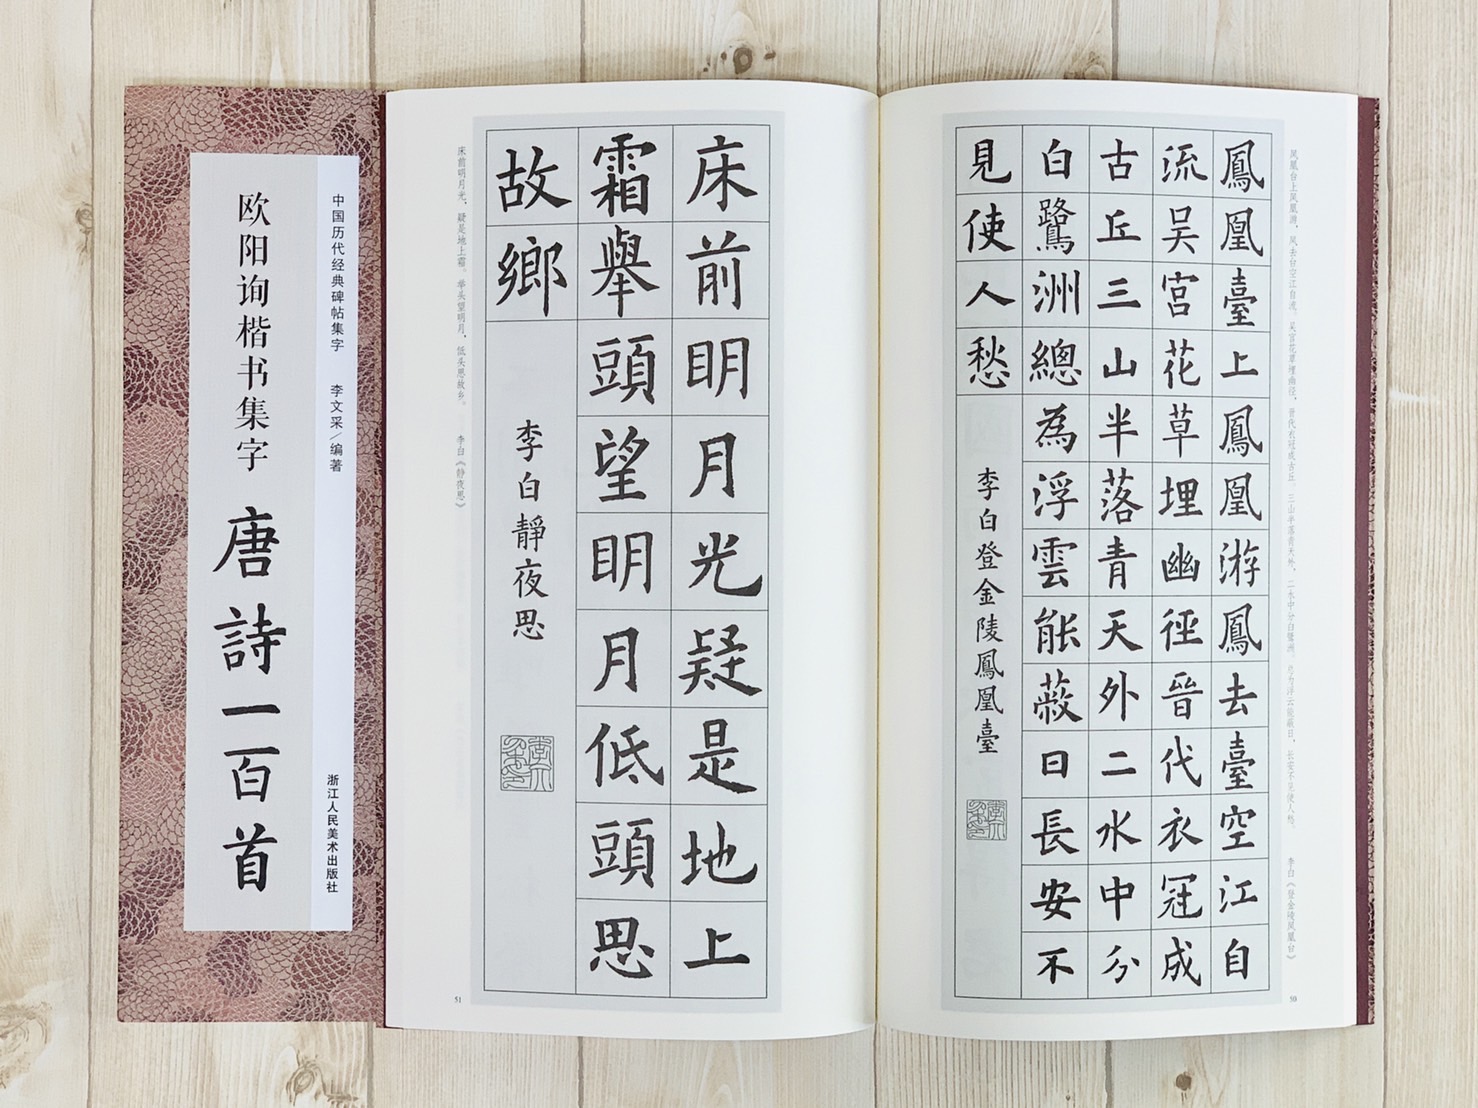 中国历代经典碑帖集字 李文采/编著 浙江人民美术出版社
欧阳询楷书集字 唐詩一百首
凤凰台上凤凰游，凤去台空江自流。吴宫花草埋幽径，晋代衣冠成古丘。三山半落青天外，二水中分白鹭洲。总为浮云能蔽日，长安不见使人愁。 李白《登金陵凤凰台》
鳳凰臺上鳳凰游鳳去臺空江自
流吴宫花草埋幽徑晉代衣冠成
古丘三山半落青天外二水中分
白鷺洲總為浮雲能蔽日長安不
見使人愁
李白登金陵鳳凰臺
50
床前明月光疑是地上
霜舉頭望明月低頭思
故鄉
李白靜夜思
床前明月光，疑是地上霜。举头望明月，低头思故乡。 李白《静夜思》
51